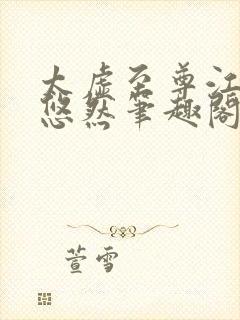 太虚至尊江
悠然笔趣阁
萱雪